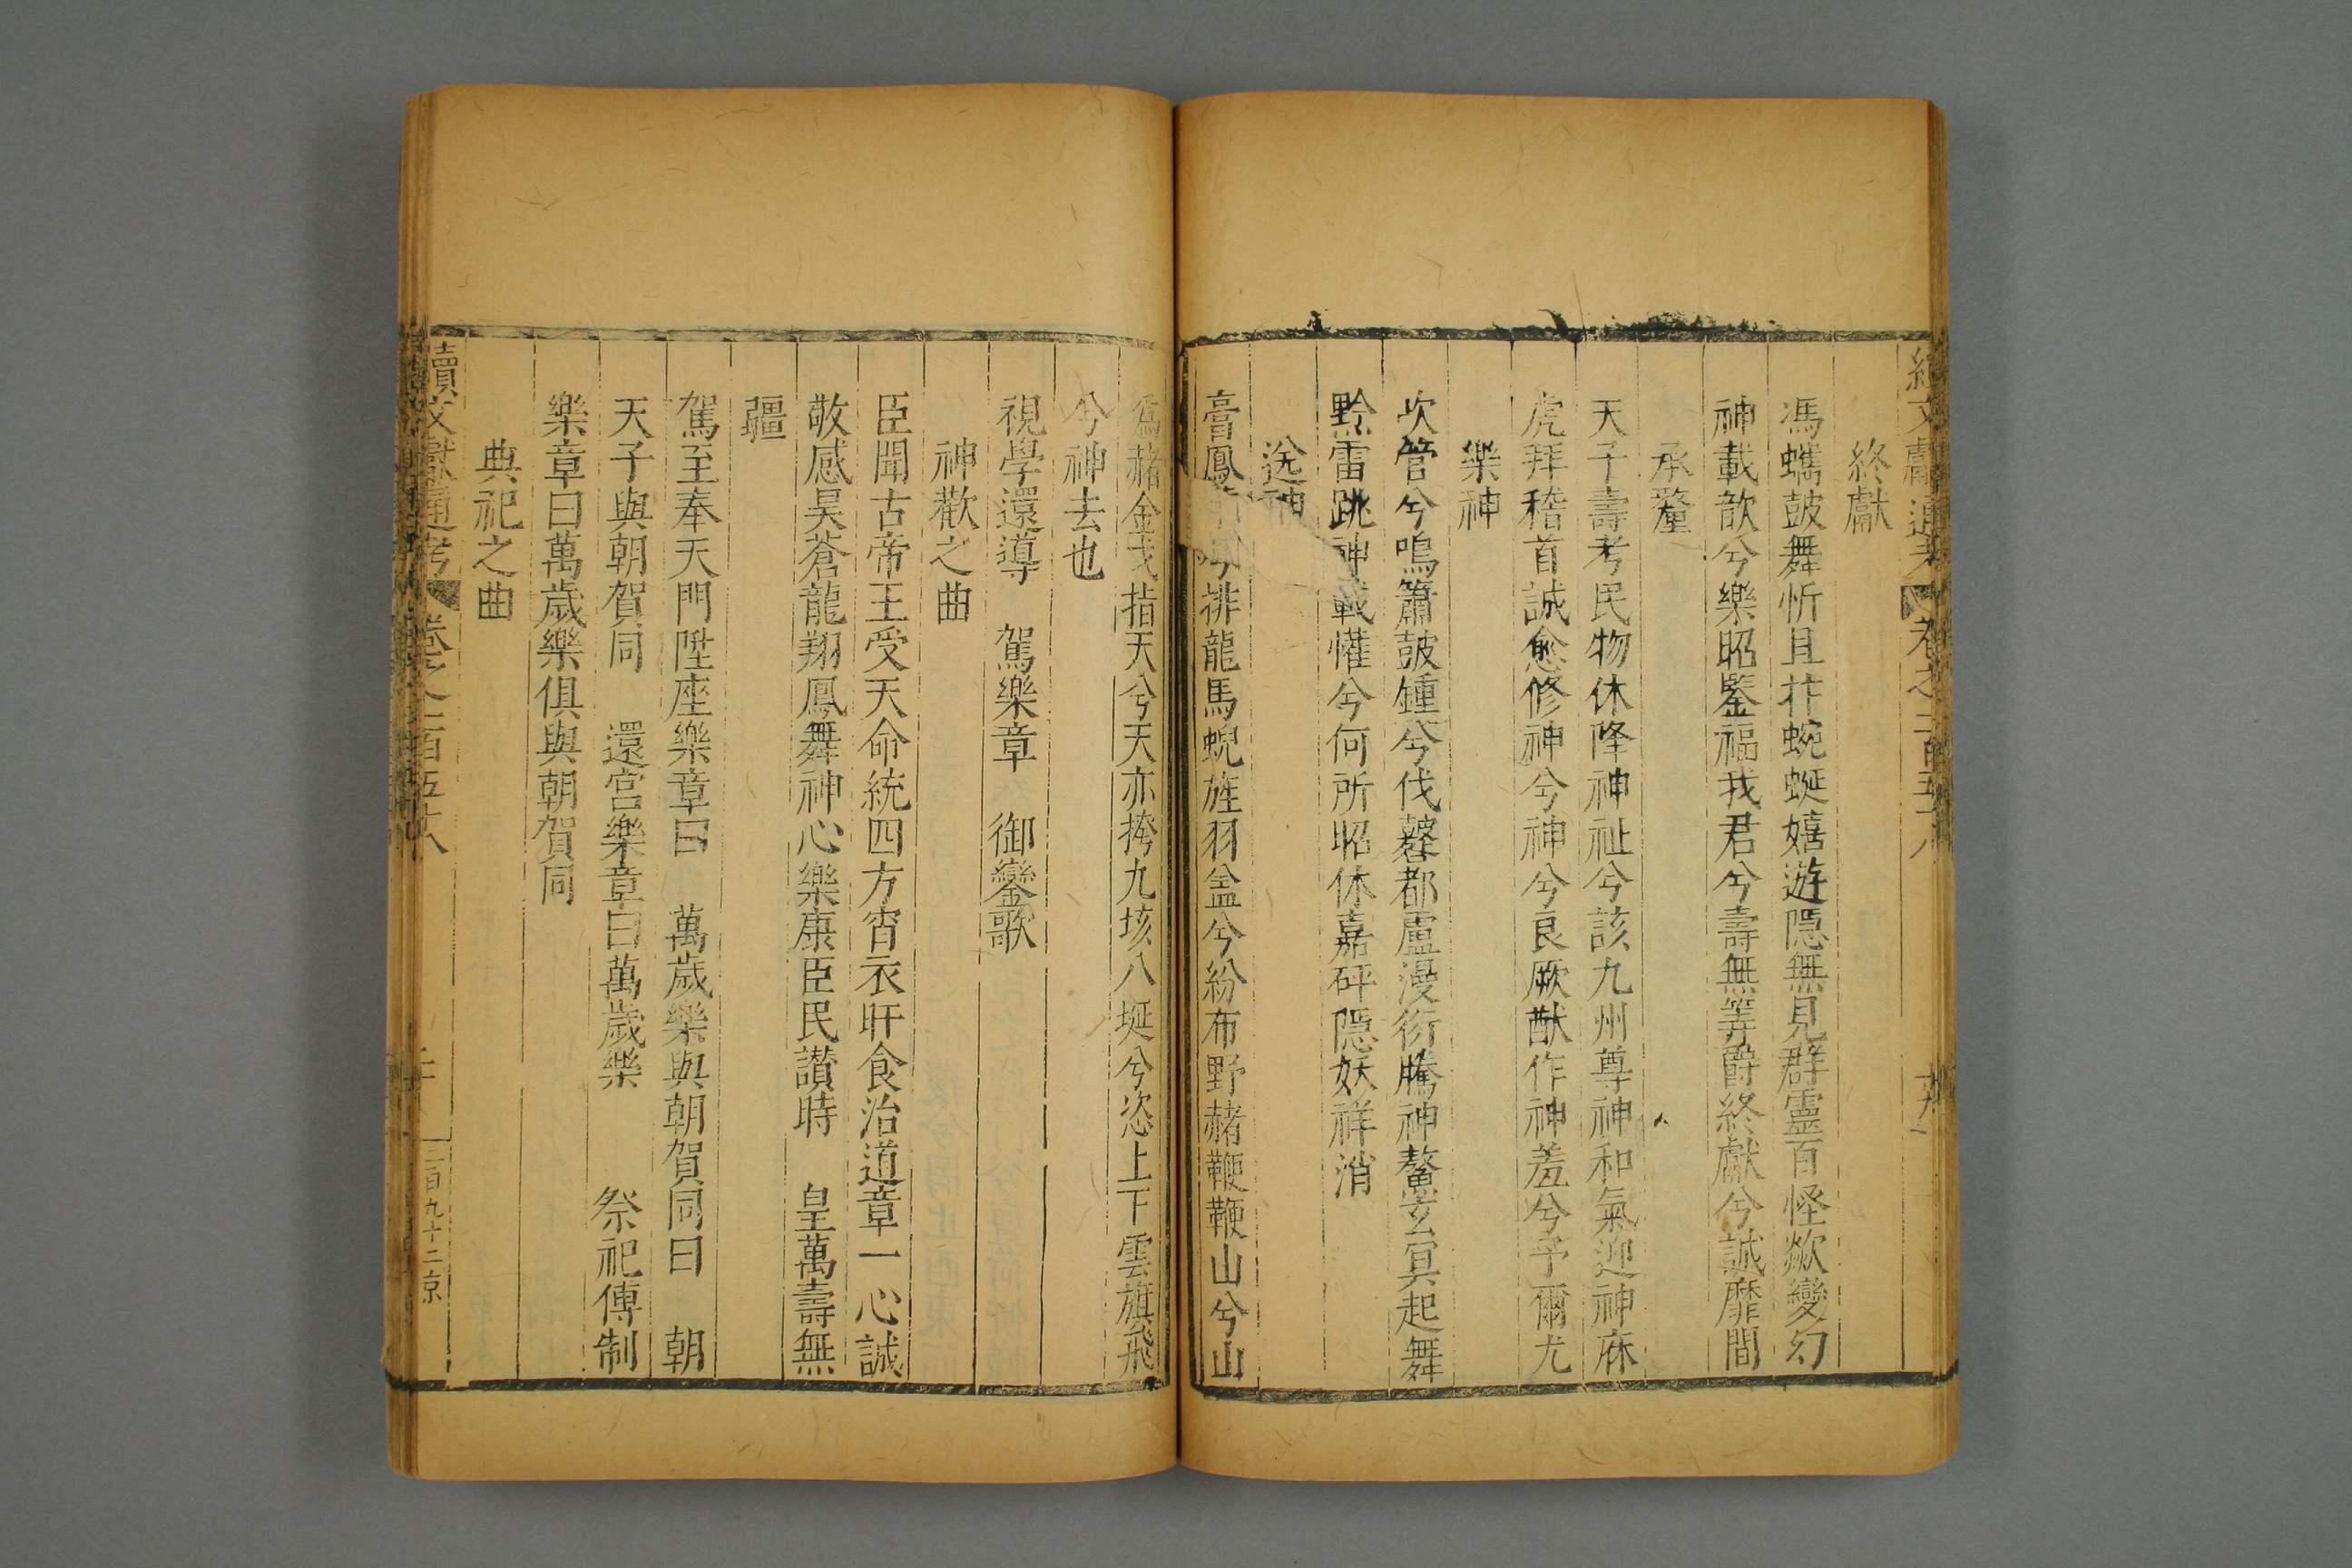 續文獻通考 卷之一百五十八
終獻
馮蠵鼓舞忻且抃蜿蜒嬉遊隱無見群靈百怪歘變幻
神載歆兮樂昭鑒福我君兮壽無筭爵終獻兮誠靡間
承釐
天子壽考民物休降神祉兮該九州尊神和氣迎神庥
虎拜稽首誠愈修神兮神兮良厥猷作神羞兮予爾尤
樂神
吹管兮鳴簫鼓鍾兮伐鼛都盧漫衍騰神鰲玄冥起舞
黔雷跳神載懽兮何所昭休嘉砰隱妖祥消
送神
膏鳳兮排龍馬蜺旌羽盖兮紛布野赭鞭鞭山兮山
爲赭金戈指天兮天亦挎九垓八埏兮恣上下雲旗飛
兮神去也
視學還導 駕樂章 御鑾歌
神歡之曲
臣聞古帝王受天命統四方宵衣旰食治道章一心誠
敬感昊蒼龍翔鳳舞神心樂康臣民讃時 皇萬壽無
疆
駕至奉天門陞座樂章曰 萬歲樂與朝賀同曰 朝
天子與朝賀同 還宮樂章曰萬歲樂 祭祀傳制
樂章曰萬歲樂俱與朝賀同
典祀之曲
續文獻通考 卷之一百五十八 二十 二百九十二京